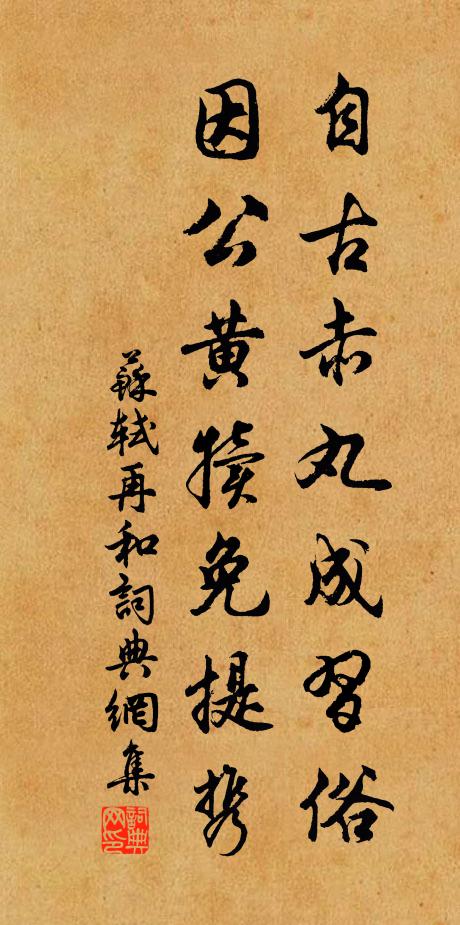 自古赤丸成習俗
因公黄犢免提携
蘇軾再和詞典網集
詞典网印